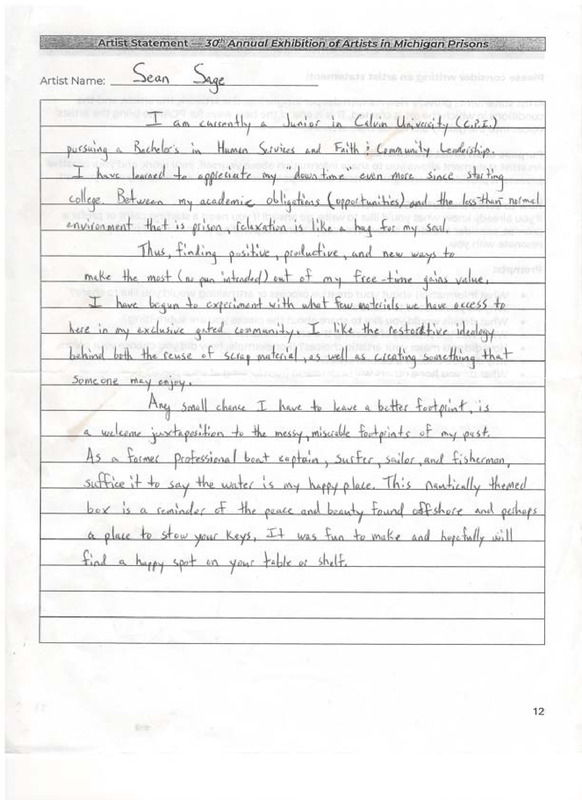 Artist Statement — 30th Annual Exhibition of Artists in Michigan Prisons
Artist Name: Sean Sage
I am currently a Junior in Calvin University (C.P.I.)
pursuing a Bachelor's in Human Services and Faith & Community Leadership.
I have learned to appreciate my "down time" even more since starting
college. Between my academic obligations (opportunities) and the less-than normal
environment that is prison, relaxation is like a hug for my soul.
Thus, finding positive, productive, and new ways to
make the most (no pun intended) out of my free-time gains value.
I have begun to experiment with what few materials we have access to
here in my exclusive gated community. I like the restorative ideology
behind both the reuse of scrap material, as well as creating something that
someone may enjoy.
Any small chance I have to leave a better footprint, is
a welcome juxtaposition to the messy, miserable footprints of my past.
As a former professional boat captain, surfer, sailor, and fisherman,
suffice it to say the water is my happy place. This nautically themed
box is a reminder of the peace and beauty found offshore and perhaps
a place to stow your keys. It was fun to make and hopefully will
find a happy spot on your table or shelf.
12